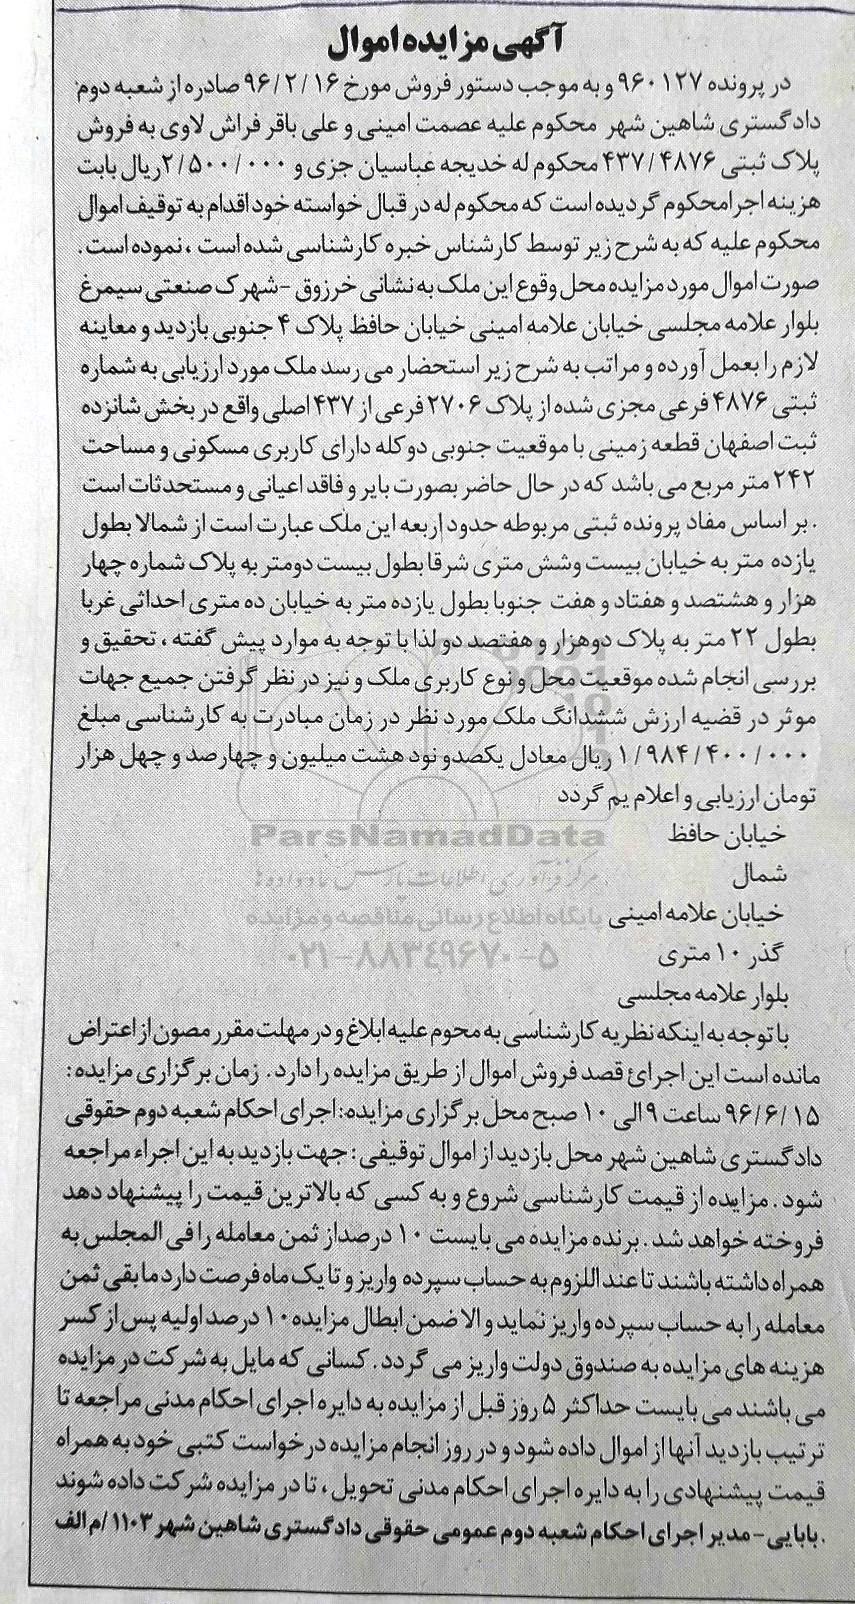 آگهی مزایده اموال
در پرونده ۹۶۰۱۲۷ و به موجب دستور فروش مورخ ۹۶/۲/۱۶ صادره از شعبه دوم
دادگستری شاهین شهر محکوم علیه عصمت امینی و علی باقر فراش لاوی به فروش
پلاک ثبتی ۴۳۷/۴۸۷۶ محکوم له خدیجه عباسیان جزی و ۲/۵۰۰/۰۰۰ ریال بابت
هزینه اجرامحکوم گردیده است که محکوم له در قبال خواسته خود اقدام به توقیف اموال
محکوم علیه که به شرح زیر توسط کارشناس خبره کارشناسی شده است ، نموده است .
صورت اموال مورد مزایده محل وقوع این ملک به نشانی خرزوق -شهرک صنعتی سیمرغ
بلوار علامه مجلسی خیابان علامه امینی خیابان حافظ پلاک ۴ جنوبی بازدید و معاینه
لازم را بعمل آورده و مراتب به شرح زیر استحضار می رسد ملک مورد ارزیابی به شماره
ثبتی ۴۸۷۶ فرعی مجزی شده از پلاک ۲۷۰۶ فرعی از ۴۳۷ اصلی واقع در بخش شانزده
ثبت اصفهان قطعه زمینی با موقعیت جنوبی دوکله دارای کاربری مسکونی و مساحت
۲۴۲ متر مربع می باشد که در حال حاضر بصورت بایر و فاقد اعیانی و مستحدثات است
. بر اساس مفاد پرونده ثبتی مربوطه حدود اربعه این ملک عبارت است از شمالا بطول
یازده متر به خیابان بیست وشش متری شرقا بطول بیست دومتر به پلاک شماره چهار
هزار و هشتصد و هفتاد و هفت جنوبا بطول یازده متر به خیابان ده متری احداثی غربا
بطول ۲۲ متر به پلاک دوهزار و هفتصد دو لذا با توجه به موارد پیش گفته ، تحقیق و
بررسی انجام شده موقعیت محل و نوع کاربری ملک و نیز در نظر گرفتن جمیع جهات
موثر در قضیه ارزش ششدانگ ملک مورد نظر در زمان مبادرت به کارشناسی مبلغ
۱/۹۸۴/۴۰۰/۰۰۰ ریال معادل یکصدو نود هشت میلیون و چهارصد و چهل هزار
تومان ارزیابی و اعلام یم گردد
ParsNamadData
خیابان حافظ
مرکز فرآوری اطلاعات پارس نماد داده ها
شمال
پایگاه اطلاع رسانی مناقصه و مزایده
خیابان علامه امینی
۰۲۱-۸۸۳۴۹۶۷۰-۵
گذر ۱۰ متری
بلوار علامه مجلسی
با توجه به اینکه نظریه کارشناسی به محوم علیه ابلاغ و در مهلت مقرر مصون از اعتراض
مانده است این اجرائ قصد فروش اموال از طریق مزایده را دارد. زمان برگزاری مزایده :
۹۶/۶/۱۵ ساعت ۹ الی ۱۰ صبح محل برگزاری مزایده: اجرای احکام شعبه دوم حقوقی
دادگستری شاهین شهر محل بازدید از اموال توقیفی : جهت بازدید به این اجراء مراجعه
شود . مزایده از قیمت کارشناسی شروع و به کسی که بالاترین قیمت را پیشنهاد دهد
فروخته خواهد شد . برنده مزایده می بایست ۱۰ درصداز ثمن معامله را فی المجلس به
همراه داشته باشند تا عند اللزوم به حساب سپرده واریز و تا یک ماه فرصت دارد مابقی ثمن
معامله را به حساب سپرده واریز نماید و الا ضمن ابطال مزایده ۱۰ درصد اولیه پس از کسر
هزینه های مزایده به صندوق دولت واریز می گردد . کسانی که مایل به شرکت در مزایده
می باشند می بایست حداکثر ۵ روز قبل از مزایده به دایره اجرای احکام مدنی مراجعه تا
ترتیب بازدید آنها از اموال داده شود و در روز انجام مزایده درخواست کتبی خود به همراه
قیمت پیشنهادی را به دایره اجرای احکام مدنی تحویل ، تا در مزایده شرکت داده شوند
. بابایی - مدیر اجرای احکام شعبه دوم عمومی حقوقی دادگستری شاهین شهر ۱۱۰۳/م الف